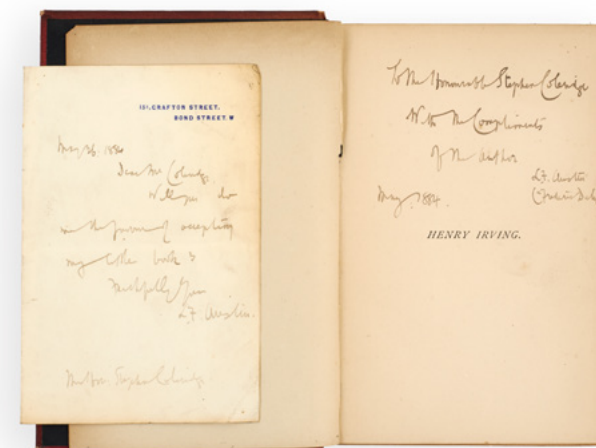 15A, GRAFTON STREET,
BOND STREET. W
May 26. 1884
Dear Mr Coleridge,
Will you do
me the favour of accepting
my little book?
Faithfully Yours
L.F. Austin.
The Hon. Stephen Coleridge
To the Honourable Stephen Coleridge
With the Compliments
of the Author
L.F. Austin
May 1884.
HENRY IRVING.